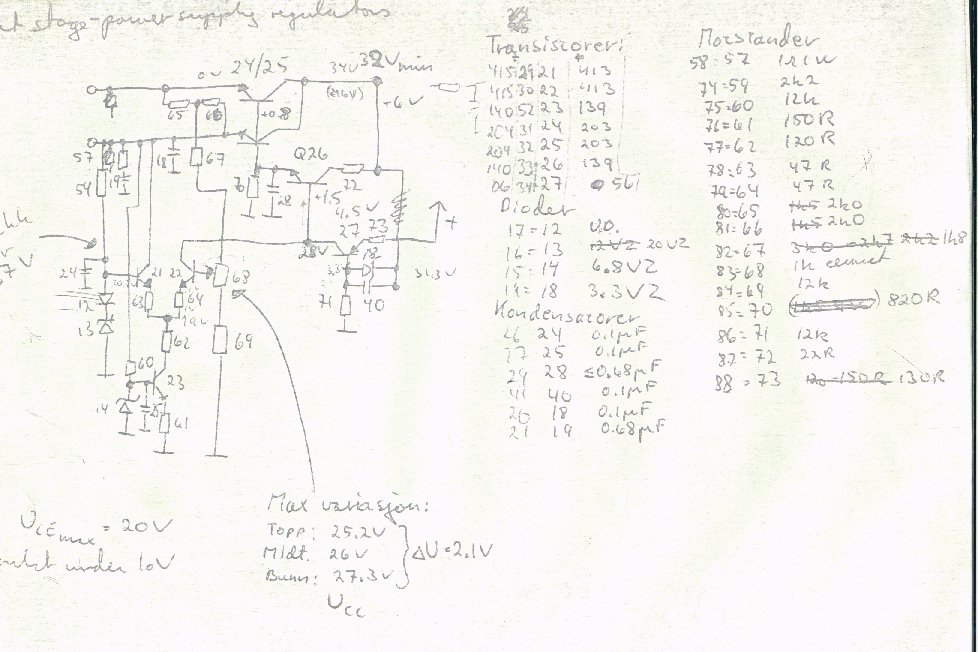 stage-power supply regulators
24/25
34V
32V min
(21.6V)
+6V
0V
65
66
+0.8
57
59
19
18
67
76
28
Q26
22
+1.5
4.5V
27
73
28V
3.3
18
+
31.3V
71
40
24
12
13
21
22
63
64
68
62
69
60
23
14
25
61
7V
Transistorer:
415 29 21 413
415 30 22 413
140 52 23 139
204 31 24 203
204 32 25 203
140 33 26 139
06 34 27 56
Dioder
17=12 U.D.
16=13 12VZ 20VZ
15=14 6.8VZ
19=18 3.3VZ
Kondensatorer
26 24 0.1µF
27 25 0.1µF
29 28 ≤0.68µF
41 40 0.1µF
20 18 0.1µF
21 19 0.68µF
Motstander
58=57 1R1W
74=59 2k2
75=60 12k
76=61 150R
77=62 120R
78=63 47R
79=64 47R
80=65 1k5 2k0
81=66 1k5 2k0
82=67 3k0 2k7 2k2 1k8
83=68 1k cermet
84=69 12k
85=70 820R
86=71 12k
87=72 22R
88=73 120-150R 130R
UCEmax = 20V
under 10V
Max variasjon:
Topp: 25.2V
Midt: 26V
Bunn: 27.3V
ΔU=2.1V
Ucc